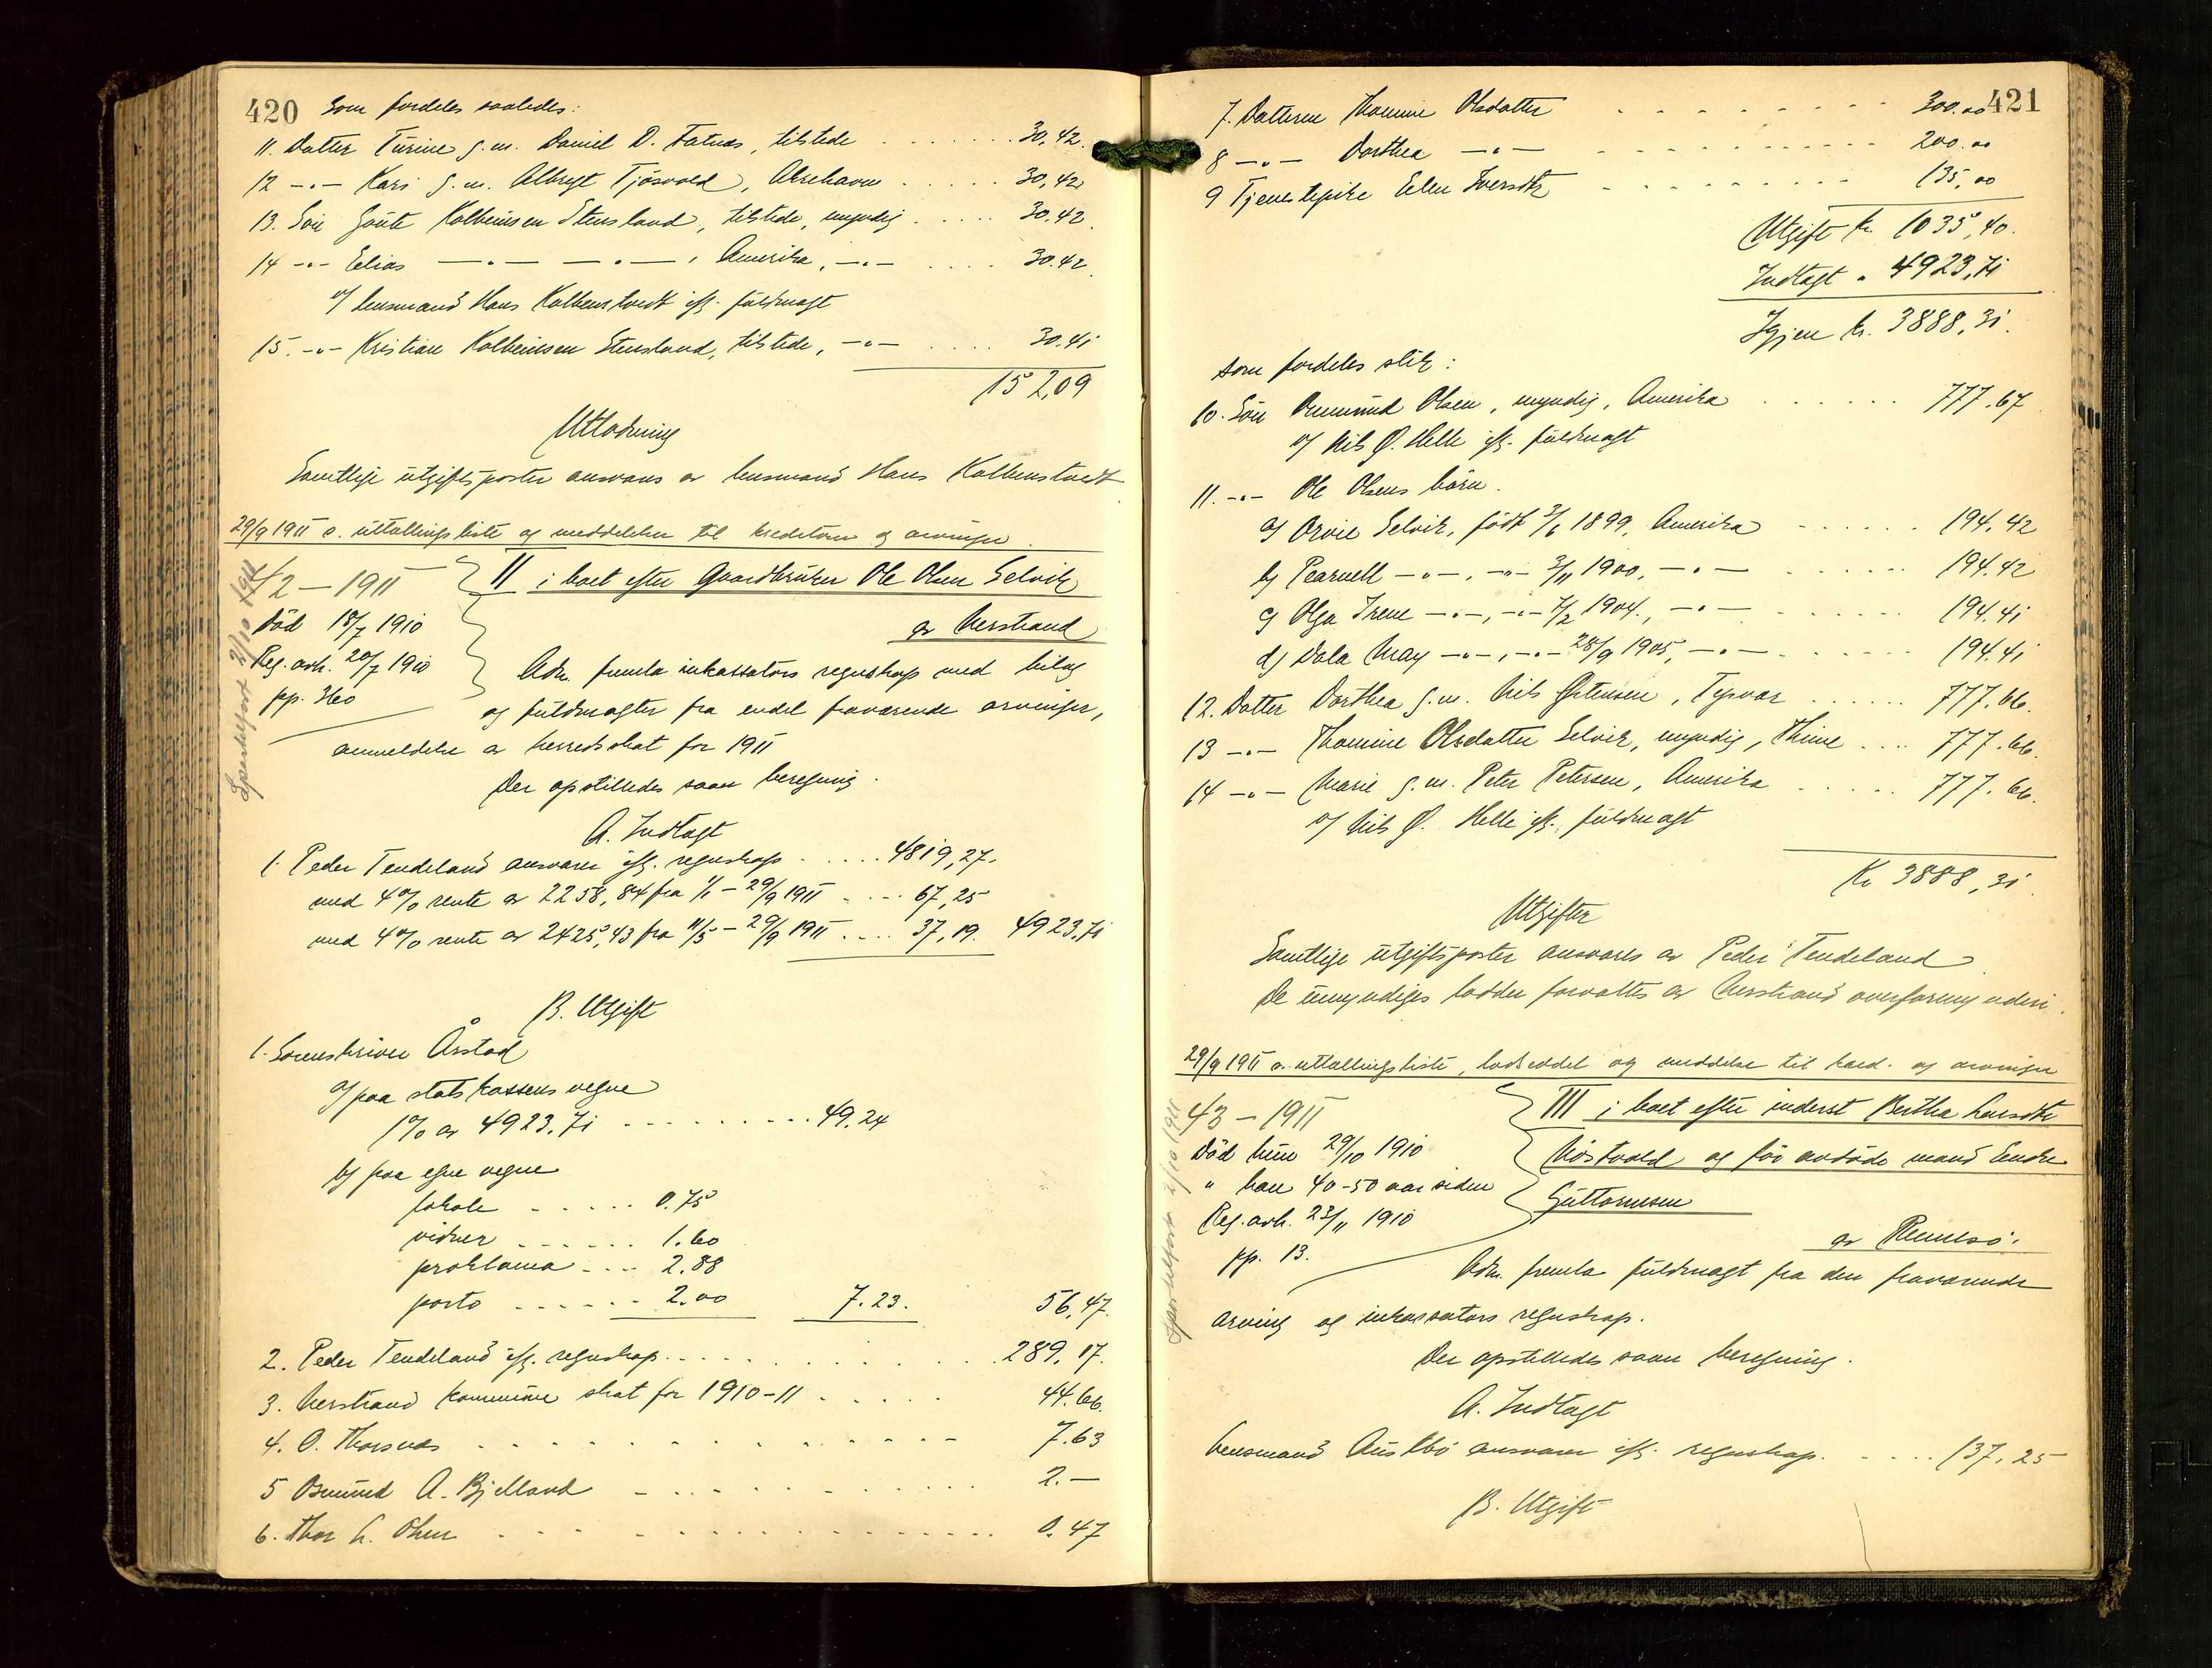 420 Som fordeles saaledes:
11. Datter Turine g. m. Daniel D. Fatnes, tilstede 30,42.
12 -"- Kari g. m. Albregt Tjösvold, Akrehavn 30,42
13. Sön Gaute Kolbeinsen Stensland, tilstede, myndig 30.42
14 -"- Elias -"- -"-, Amerika, -"- 30.42
v/ lensmand Hans Kolbenstvedt ifg. fuldmagt
15. -"- Kristian Kolbeinsen Stensland, tilstede, -"- 30.41
152,09
Utlodning
Samtlige utgiftsposter ansvares av lensmand Hans Kolbenstvedt
29/9 1911 s. uttallingsliste og meddelelser til kreditorer og arvinger.
42 - 1911
II i boet efter Gaardbruker Ole Olsen Selvik
av Nerstrand
Död 18/7 1910
Reg. anh. 20/7 1910
pp. 360
Sportelført 2/10 1911
Adm. fremla inkassators regnskap med bilag
og fuldmagter fra endel fraværende arvinger,
anmeldelse av herredsskat for 1911
Der opstilledes saan beregning.
A. Indtægt
1. Peder Tendeland ansvarer ifg. regnskap 4819,27.
med 4% rente av 2258,84 fra 1/1 - 29/9 1911 67,25
med 4% rente av 2425,43 fra 11/5 - 29/9 1911 37,19. 4923,71
B. Utgift
1. Sorenskriver Årstad
a) paa statskassens vegne
1% av 4923.71 49.24
b) paa egne vegne
lokale 0.75
vidner 1.60
proklama 2.88
porto 2.00 7.23. 56,47.
2. Peder Tendeland ifg. regnskap 289,17.
3. Nerstrand kommune skat for 1910-11 44.66.
4. O. Thorsnæs 7.63
5 Osmund A. Bjelland 2.—
6. Thor L. Ohm 0.47
421
7. Datteren Thomine Olsdatter 300.00
8 -"- Dorthea -"- 200.00
9 Tjenestepike Elen Iversdtr 135,00
Utgift kr. 1035,40.
Indtægt " 4923,71
Igjen kr. 3888,31.
som fordeles slik:
10. Sön Ommund Olsen, myndig, Amerika 777.67
v/ Nils Ø. Helle ifg. fuldmagt
11. -"- Ole Olsens börn.
a) Orvie Selvik, födt 3/6 1899, Amerika 194,42
b) Pearnell -"-, -"- 3/11 1900, -"- 194.42
c) Olga Irene -"-, -"- 7/2 1904., -"- 194.41
d) Dola May -"-, -"- 28/9 1905, -"- 194.41
12. Datter Dorthea g. m. Nils Østensen, Tysvær 777.66.
13 -"- Thomine Olsdatter Selvik, myndig, Thime 777.66.
14 -"- Marie g. m. Peter Petersen, Amerika 777.66.
v/ Nils Ø. Helle ifg. fuldmagt
Kr 3888,31.
Utgifter
Samtlige utgiftsposter ansvares av Peder Tendeland
De umyndiges lodder forvaltes av Nerstrand overformynderi.
29/9 1911 s. uttallingsliste, lodseddel og meddelse til kred. og arvinger
43 - 1911
III i boet efter inderst Bertha Larsdtr
Död hun 29/10 1910
Nöstvold og för avdöde mand Endre
" han 40-50 aar siden
Guttormsen
Reg. anh. 23/11 1910
pp. 13.
av Rennesö.
Sportelført 2/10 1911
Adm. fremla fuldmagt fra den fraværende
arving og inkassators regnskap.
Der opstilledes saan beregning.
A. Indtægt
Lensmand Austbö ansvarer ifg. regnskap. 137,25
B. Utgift